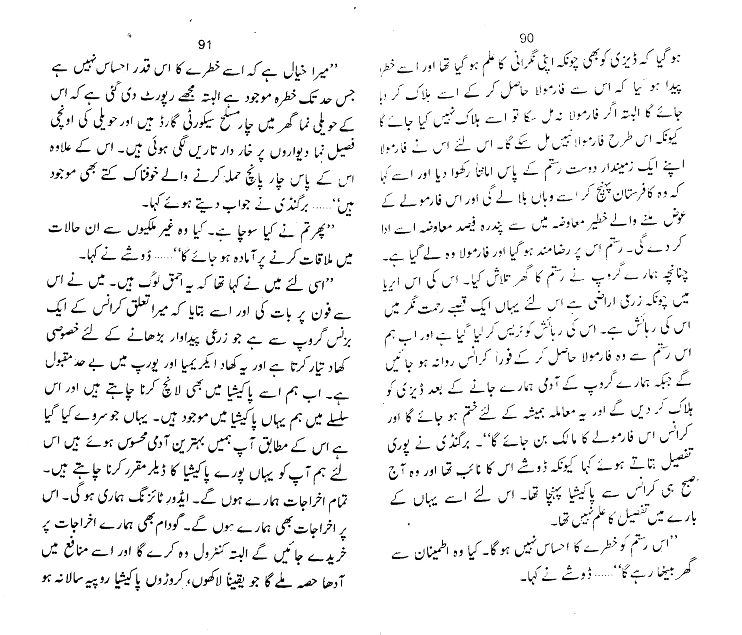 90
ہو گیا کہ ڈیزی کو بھی چونکہ اپنی نگرانی کا علم ہو گیا تھا اور اسے خطرہ
پیدا ہو گیا کہ اس سے فارمولا حاصل کر کے اسے ہلاک کر دیا
جائے گا البتہ اگر فارمولا نہ مل سکا تو اسے ہلاک نہیں کیا جائے گا
کیونکہ اس طرح فارمولا نہیں مل سکے گا۔ اس لئے اس نے فارمولا
اپنے ایک زمیندار دوست رستم کے پاس امانتاً رکھوا دیا اور اسے کہا
کہ وہ کافرستان پہنچ کر اسے وہاں بلا لے گی اور اس فارمولے کے
عوض ملنے والے خطیر معاوضہ میں سے پندرہ فیصد معاوضہ اسے ادا
کر دے گی۔ رستم اس پر رضامند ہو گیا اور فارمولا وہ لے گیا ہے۔
چنانچہ ہمارے گروپ نے رستم کا گھر تلاش کیا۔ اس کی اس ایریا
میں چونکہ زرعی اراضی ہے اس لئے یہاں ایک قصبے رحمت نگر میں
اس کی رہائش ہے۔ اس کی رہائش کو ٹریس کر لیا گیا ہے اور اب ہم
اس رستم سے وہ فارمولا حاصل کر کے فوراً کرانس روانہ ہو جائیں
گے جبکہ ہمارے گروپ کے آدمی ہمارے جانے کے بعد ڈیزی کو
ہلاک کر دیں گے اور یہ معاملہ ہمیشہ کے لئے ختم ہو جائے گا اور
کرانس اس فارمولے کا مالک بن جائے گا‘‘۔ برگنڈی نے پوری
تفصیل بتاتے ہوئے کہا کیونکہ ڈوشے اس کا نائب تھا اور وہ آج
صبح ہی کرانس سے پاکیشیا پہنچا تھا۔ اس لئے اسے یہاں کے
بارے میں تفصیل کا علم نہیں تھا۔
’’اس رستم کو خطرے کا احساس نہیں ہو گا۔ کیا وہ اطمینان سے
گھر بیٹھا رہے گا‘‘...... ڈوشے نے کہا۔
91
’’میرا خیال ہے کہ اسے خطرے کا اس قدر احساس نہیں ہے
جس حد تک خطرہ موجود ہے البتہ مجھے رپورٹ دی گئی ہے کہ اس
کے حویلی نما گھر میں چار مسلح سیکورٹی گارڈ ہیں اور حویلی کی اونچی
فصیل نما دیواروں پر خار دار تاریں لگی ہوئی ہیں۔ اس کے علاوہ
اس کے پاس چار پانچ حملہ کرنے والے خوفناک کتے بھی موجود
ہیں‘‘...... برگنڈی نے جواب دیتے ہوئے کہا۔
’’پھر تم نے کیا سوچا ہے۔ کیا وہ غیر ملکیوں سے ان حالات
میں ملاقات کرنے پر آمادہ ہو جائے گا‘‘...... ڈوشے نے کہا۔
’’اسی لئے میں نے کہا تھا کہ یہ احمق لوگ ہیں۔ میں نے اس
سے فون پر بات کی اور اسے بتایا کہ میرا تعلق کرانس کے ایک
بزنس گروپ سے ہے جو زرعی پیداوار بڑھانے کے لئے خصوصی
کھاد تیار کرتا ہے اور یہ کھاد ایکریمیا اور یورپ میں بے حد مقبول
ہے۔ اب ہم اسے پاکیشیا میں بھی لانچ کرنا چاہتے ہیں اور اس
سلسلے میں ہم یہاں پاکیشیا میں موجود ہیں۔ یہاں جو سروے کیا گیا
ہے اس کے مطابق آپ ہمیں بہترین آدمی محسوس ہوئے ہیں اس
لئے ہم آپ کو یہاں پورے پاکیشیا کا ڈیلر مقرر کرنا چاہتے ہیں۔
تمام اخراجات ہمارے ہوں گے۔ ایڈورٹائزنگ ہماری ہو گی۔ اس
پر اخراجات بھی ہمارے ہوں گے۔ گودام بھی ہمارے اخراجات پر
خریدے جائیں گے البتہ کنٹرول وہ کرے گا اور اسے منافع میں
آدھا حصہ ملے گا جو یقیناً لاکھوں، کروڑوں پاکیشیا روپیہ سالانہ ہو